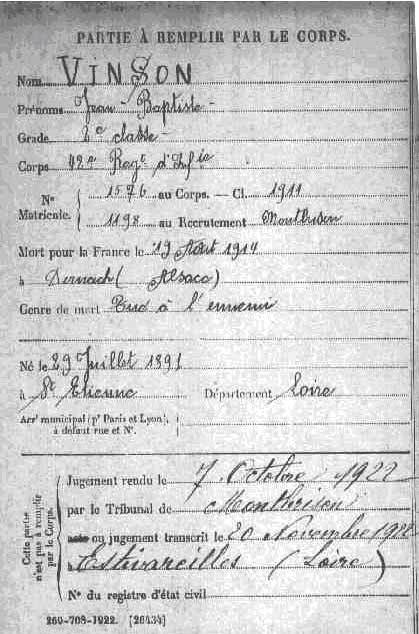 PARTIE À REMPLIR PAR LE CORPS.
Nom VINSON
Prénoms Jean-Baptiste-
Grade 2e classe-
Corps 42e Regt d'Infie
No Matricule. { 1576 au Corps. — Cl. 1911
1198 au Recrutement Montbrison
Mort pour la France le 19 Août 1914
à Dornach (Alsace)
Genre de mort Tué à l'ennemi
Né le 29 Juillet 1891
à St Etienne Département Loire
Arrt municipal (pr Paris et Lyon), à défaut rue et No.
Cette partie n'est pas à remplir par le Corps.
Jugement rendu le 7 Octobre 1922
par le Tribunal de Montbrison
acte ou jugement transcrit le 20 Novembre 1922
Estivareilles (Loire)
No du registre d'état civil
269-708-1922. [26434]